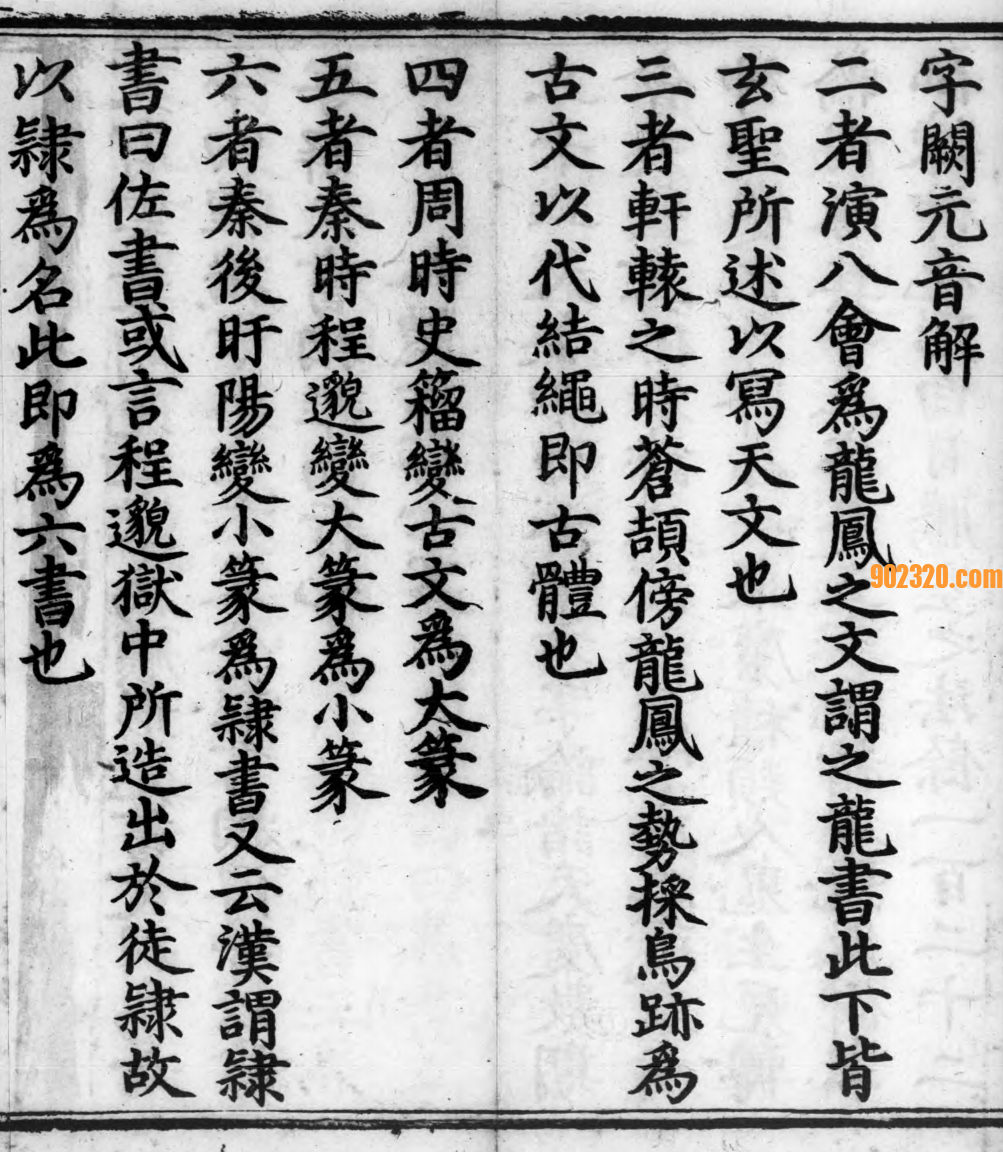 字闕元音解
二者演八會爲龍鳳之文謂之龍書此下皆
玄聖所述以寫天文也
三者軒轅之時蒼頡傍龍鳳之勢採鳥跡爲
古文以代結繩即古體也
四者周時史籀變古文爲大篆
五者秦時程邈變大篆爲小篆
六者秦後盱陽變小篆爲隸書又云漢謂隸
書曰佐書或言程邈獄中所造出於徒隸故
以隸爲名此即爲六書也
902320.com